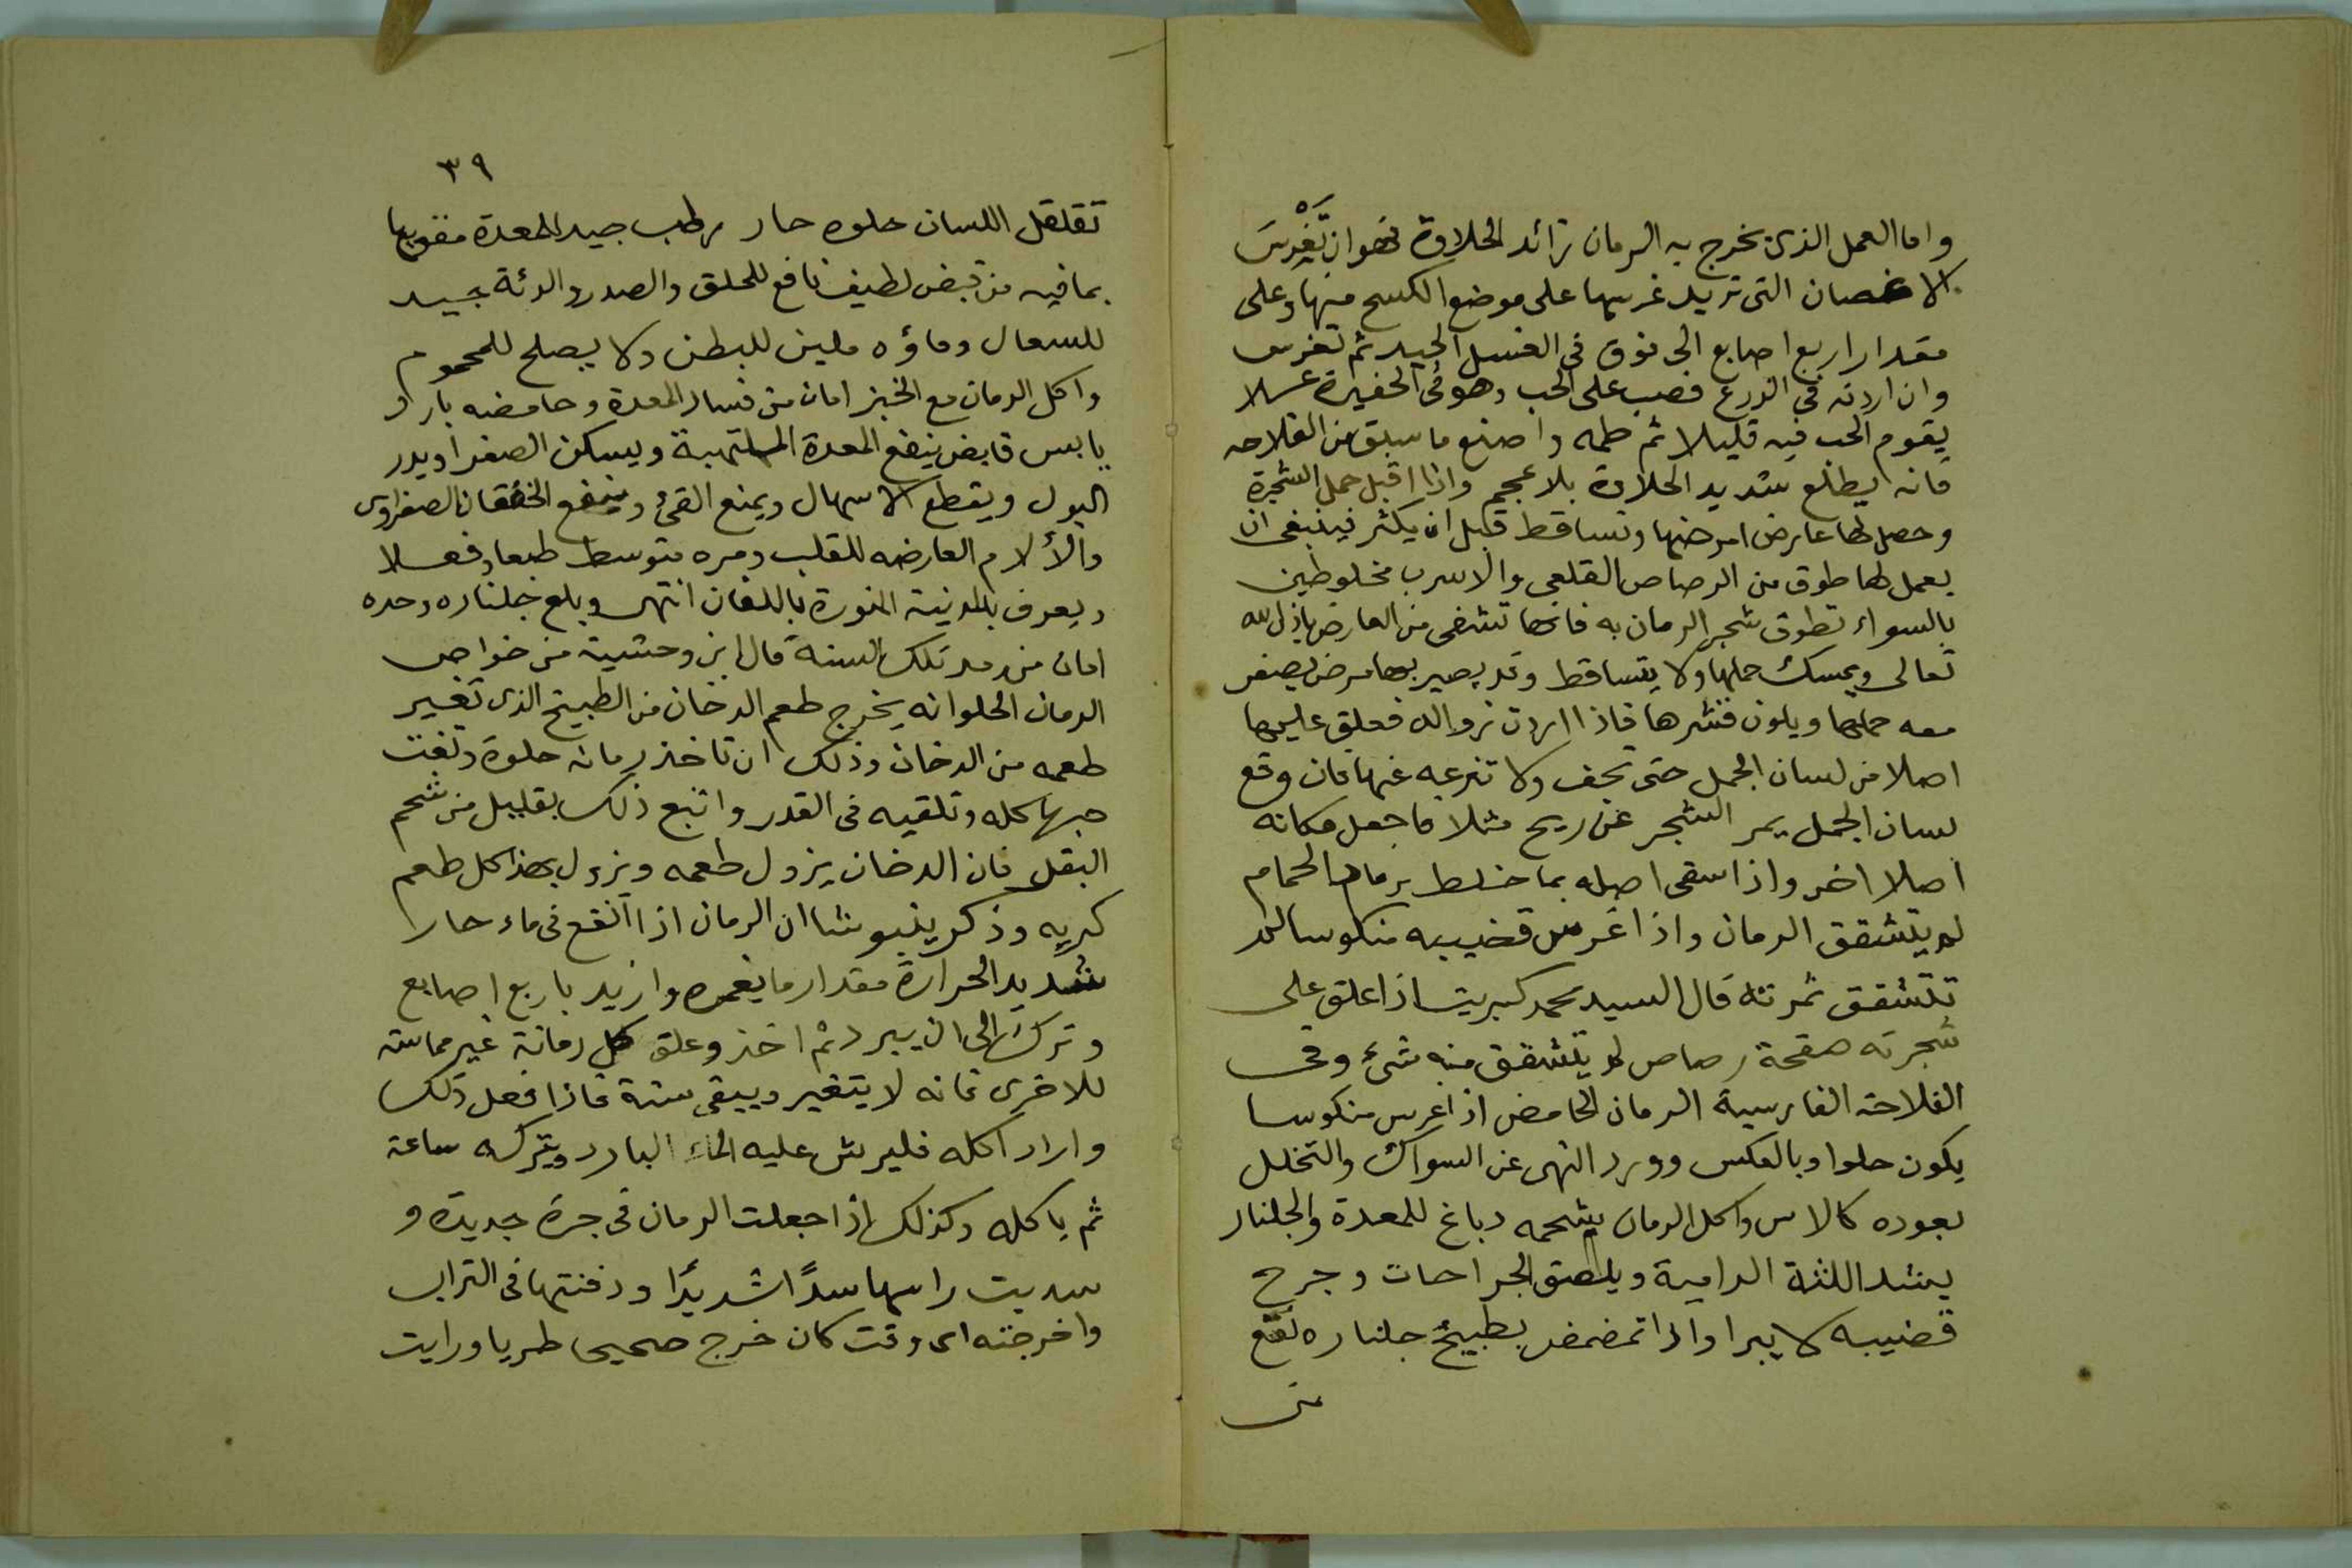 واما العمل الذى يخرج به الرمان زائد الحلاوة فهو ان تغرس
الاغصان التى تريد غرسها على موضع الكسح منها وعلى
مقدار اربع اصابع الى فوق فى العسل الجيد ثم تغرس
وان اردته فى الزرع فصب على الحب وهو فى الحفيرة عسلا
يقوم الحب فيه قليلا ثم طمه واصنع ما سبق من الفلاحه
فانه يطلع شديد الحلاوة بلا عجم واذا اقبل حمل الشجرة
وحصل لها عارض امرضها وتساقط قبل ان يكثر فينبغى ان
يعمل لها طوق من الرصاص القلعى والاسرب مخلوطين
بالسواء تطوق شجر الرمان به فانها تشفى من العارض باذن الله
تعالى ويمسك حملها ولا يتساقط وقد يصير بها مرض يصفر
معه حملها ويلون قشرها فاذا اردت زواله فعلق عليها
اصلا من لسان الجمل حتى يجف ولا تنزعه عنها فان وقع
لسان الجمل يمر الشجر عن ريح مثلا فاجعل مكانه
اصلا اخر واذا سقى اصله بما خلط برماد الحمام
لم يتشقق الرمان واذا غرس قضيبه منكوسا لم
تتشقق ثمرته قال السيد محمد كبريت اذا علق على
شجرته صفحة رصاص لم يتشقق منه شئ وفى
الفلاحة الفارسية الرمان الحامض اذا غرس منكوسا
يكون حلوا وبالعكس وورد النهى عن السواك والتخلل
بعوده كالاس واكل الرمان بشحمه دباغ للمعدة والجلنار
يشد اللثة الدامية ويلصق الجراحات وجرح
قضيبه لا يبرا واذا تمضمض بطبيخ جلناره نفع
من
٣٩
تقلقل اللسان حلوه حار رطب جيد للمعدة مقويها
بما فيه من قبض لطيف نافع للحلق والصدر والرئة جيد
للسعال وماؤه ملين للبطن ولا يصلح للمحموم
واكل الرمان مع الخبز امان من فساد المعدة وحامضه بارد
يابس قابض ينفع المعدة الملتهبة ويسكن الصفرا ويدر
البول ويقطع الاسهال ويمنع القئ وينفع الخفقان الصفراوى
والألام العارضه للقلب ومره متوسط طبعا وفعلا
ويعرف بالمدينة المنورة باللفان انتهى وبلع جلناره وحده
امان من رمد تلك السنة قال ابن وحشية من خواص
الرمان الحلو انه يخرج طعم الدخان من الطبيخ الذى تغير
طعمه من الدخان وذلك ان تاخذ رمانه حلوة وتفت
حبها كله وتلقيه فى القدر واتبع ذلك بقليل من شحم
البقل فان الدخان يزول طعمه ويزول بهذا كل طعم
كريه وذكر ينبوشا ان الرمان اذا انقع فى ماء حارا
شديد الحرارة مقدار ما يغمره وازيد باربع اصابع
وترك الى ان يبرد ثم اخذ وعلق كل رمانة غير مماسة
للاخرى فانه لا يتغير ويبقى سنة فاذا فعل ذلك
واراد اكله فليرش عليه الماء البارد ويتركه ساعة
ثم ياكله وكذلك اذا جعلت الرمان فى جرة جديدة و
سديت راسها سدًا شديدًا ودفنتها فى التراب
واخرجته اى وقت كان خرج صحيحا طريا ورايت